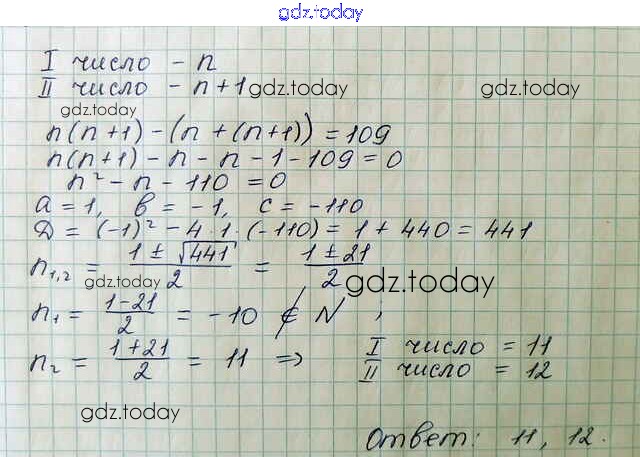 gdz.today
I число - n
II число - n+1 gdz.today gdz.today
gdz.today
n(n+1)-(n+(n+1))=109
n(n+1)-n-n-1-109=0
n²-n-110=0
a=1, b=-1, c=-110
Д=(-1)²-4·1·(-110)=1+440=441
n₁,₂ = (1±√441)/2 = (1±21)/2
gdz.today gdz.today
n₁ = (1-21)/2 = -10 ∉ N ;
n₂ = (1+21)/2 = 11 ⇒ I число = 11
II число = 12
gdz.today
Ответ: 11, 12.